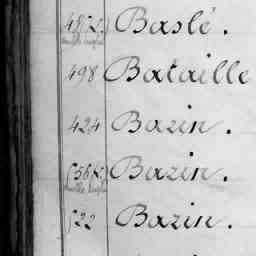 Baslé.
498 Bataille
424 Bazin.
Bazin.
522 Bazin.